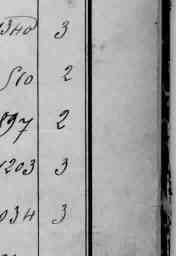 1340 3
510 2
897 2
1203 3
034 3